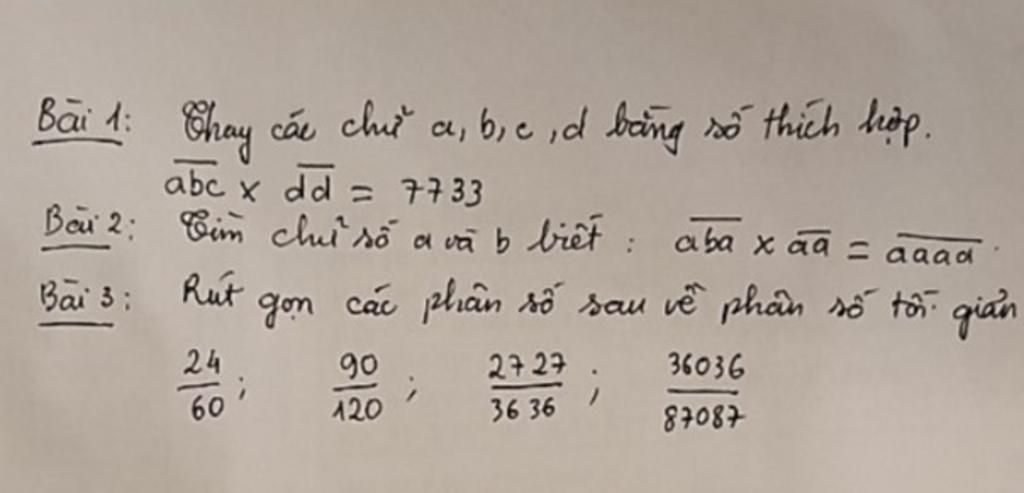 Bài 1: Thay các chữ a, b, c, d bằng số thích hợp.
abc x dd = 7733
Bài 2: Tìm chữ số a và b biết : aba x aa = aaaa.
Bài 3: Rút gọn các phân số sau về phân số tối giản
24/60 ; 90/120 ; 2727/3636 ; 36036/87087